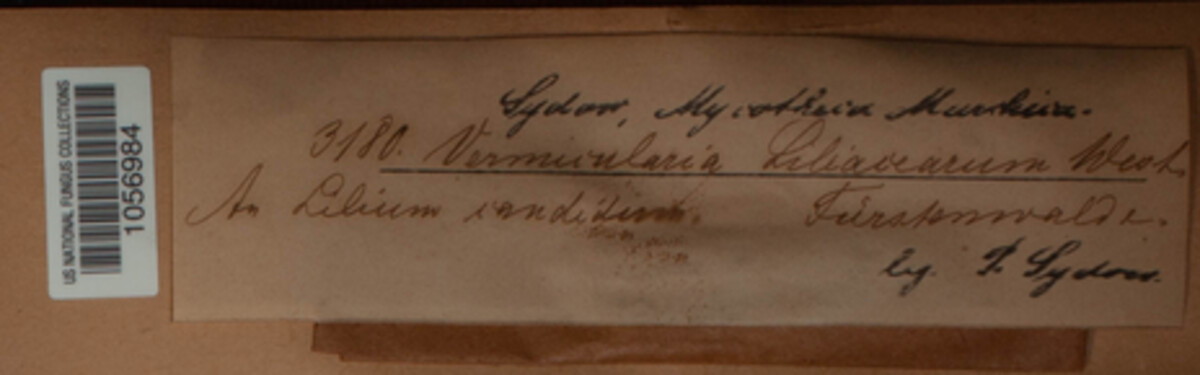 US NATIONAL FUNGUS COLLECTIONS
1056984
Sydow, Mycotheca Marchica.
3180. Vermicularia Liliacearum West.
An Lilium candidum. Fürstenwalde.
leg. P. Sydow.